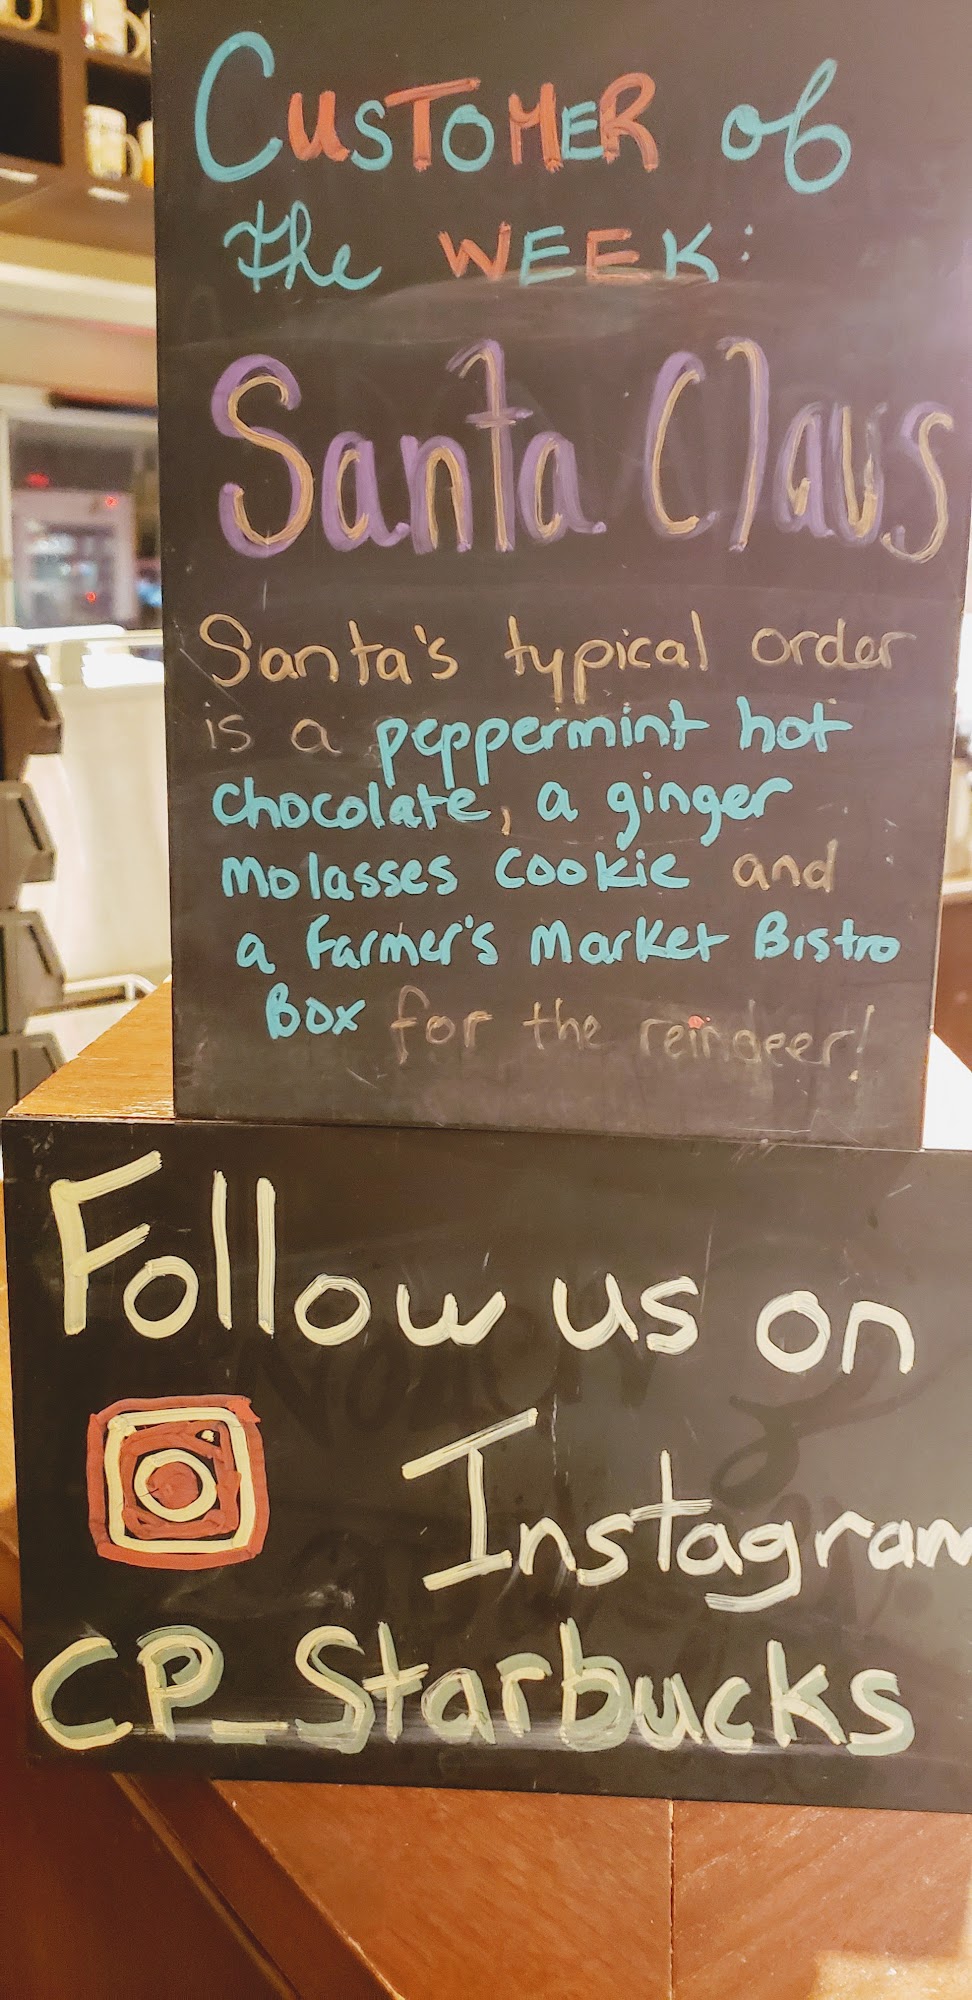 CUSTOMER of
the WEEK:
Santa Claus
Santa's typical order
is a peppermint hot
chocolate, a ginger
molasses cookie and
a Farmer's Market Bistro
Box for the reindeer!
Follow us on
Instagram
CP_Starbucks